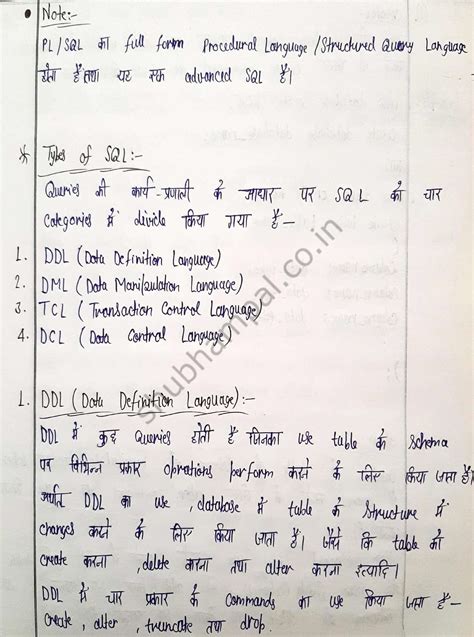 Note:-
PL/SQL का full form Procedural Language/Structured Query Language
होता है तथा यह एक advanced SQL है।
* Types of SQL:-
Queries की कार्य-प्रणाली के आधार पर SQL को चार
categories में divide किया गया है-
1. DDL (Data Definition Language)
2. DML (Data Manipulation Language)
3. TCL (Transaction Control Language)
4. DCL (Data Control Language)
1. DDL (Data Definition Language):-
DDL में कुछ Queries होती है जिनका use table के schema
पर विभिन्न प्रकार oprations perform करने के लिए किया जाता है।
अर्थात DDL का use, database में table के structure में
changes करने के लिए किया जाता है। जैसे कि table को
create करना, delete करना तथा alter करना इत्यादि।
DDL में चार प्रकार के commands का use किया जाता है-
create, alter, truncate तथा drop.
shubhampal.co.in